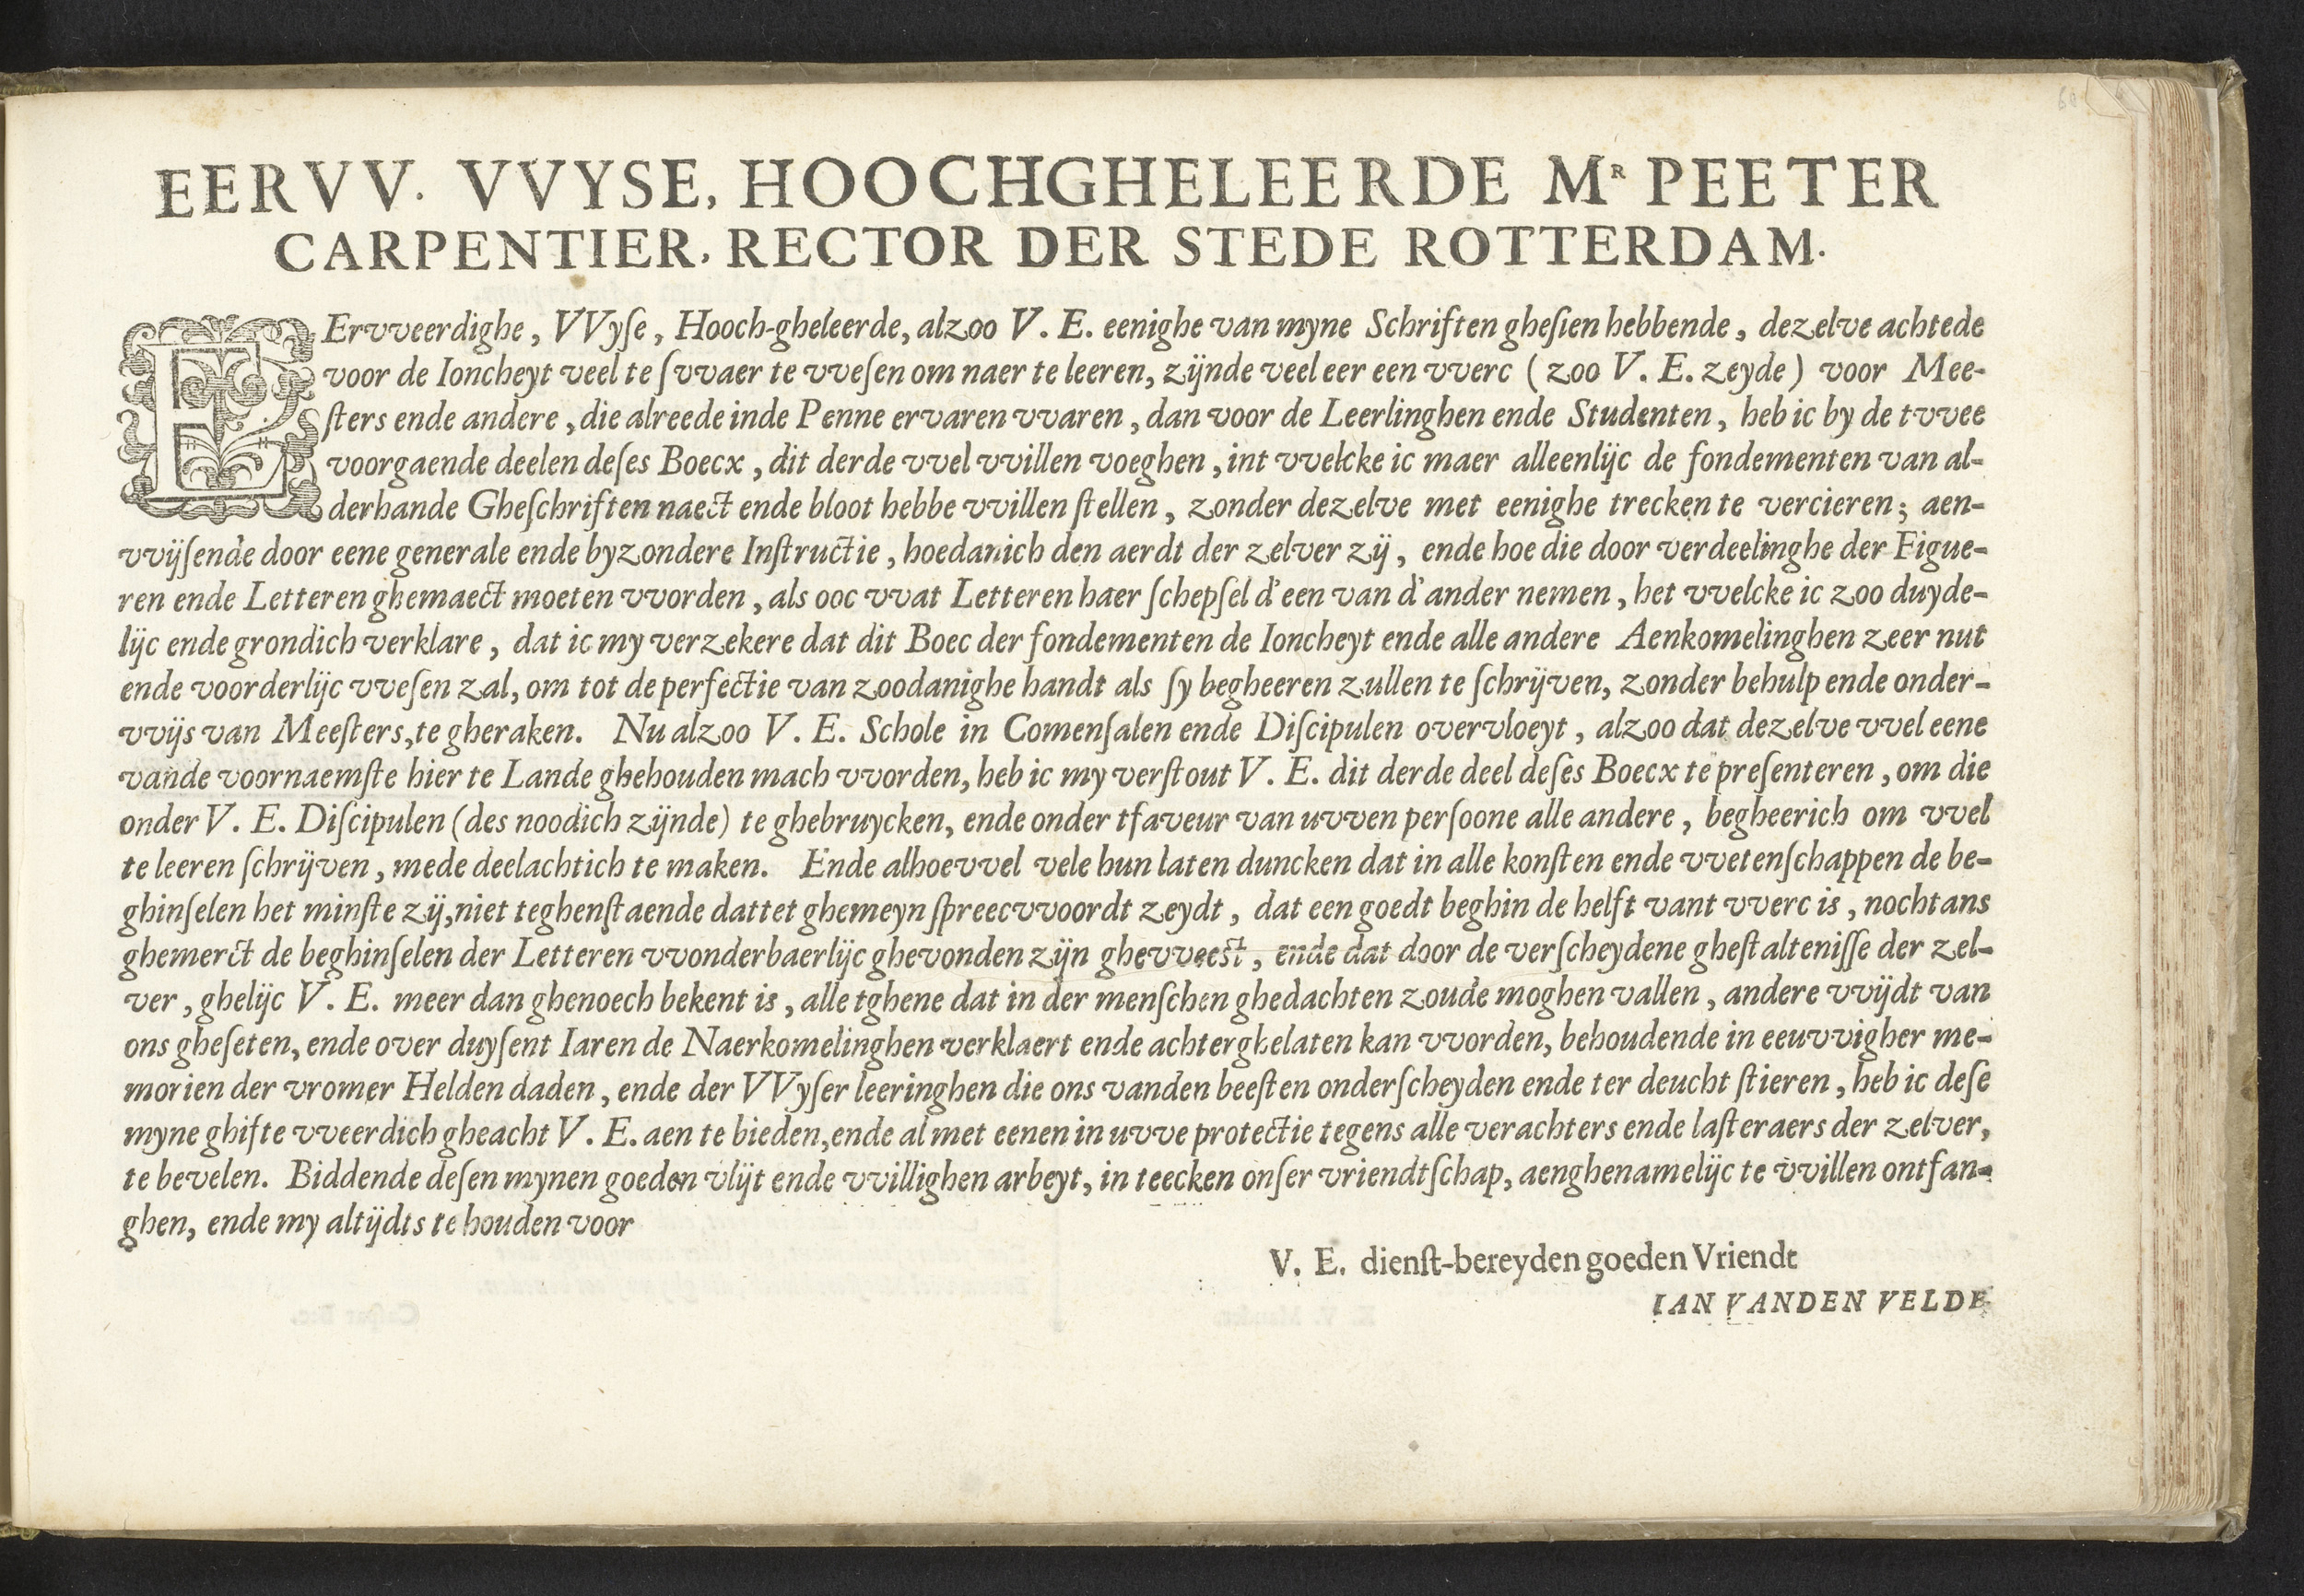 EERVV. VVYSE, HOOCHGHELEERDE MR PEETER
CARPENTIER, RECTOR DER STEDE ROTTERDAM.
EErvveerdighe, VVyſe, Hooch-gheleerde, alzoo V. E. eenighe van myne Schriften gheſien hebbende, dezelve achtede
voor de Ioncheyt veel te ſvvaer te vveſen om naer te leeren, zijnde veel eer een vverc (zoo V. E. zeyde) voor Mee-
ſters ende andere, die alreede inde Penne ervaren vvaren, dan voor de Leerlinghen ende Studenten, heb ic by de tvvee
voorgaende deelen deſes Boecx, dit derde vvel vvillen voeghen, int vvelcke ic maer alleenlijc de fondementen van al-
derhande Gheſchriften naect ende bloot hebbe vvillen ſtellen, zonder dezelve met eenighe trecken te vercieren; aen-
vvijſende door eene generale ende byzondere Inſtructie, hoedanich den aerdt der zelver zij, ende hoe die door verdeelinghe der Figue-
ren ende Letteren ghemaect moeten vvorden, als ooc vvat Letteren haer ſchepſel d'een van d'ander nemen, het vvelcke ic zoo duyde-
lijc ende grondich verklare, dat ic my verzekere dat dit Boec der fondementen de Ioncheyt ende alle andere Aenkomelinghen zeer nut
ende voorderlijc vveſen zal, om tot de perfectie van zoodanighe handt als ſy begheeren zullen te ſchrijven, zonder behulp ende onder-
vvijs van Meeſters, te gheraken. Nu alzoo V. E. Schole in Comenſalen ende Diſcipulen overvloeyt, alzoo dat dezelve vvel eene
vande voornaemſte hier te Lande ghehouden mach vvorden, heb ic my verſtout V. E. dit derde deel deſes Boecx te preſenteren, om die
onder V. E. Diſcipulen (des noodich zijnde) te ghebruycken, ende onder tfaveur van uvven perſoone alle andere, begheerich om vvel
te leeren ſchrijven, mede deelachtich te maken. Ende alhoevvel vele hun laten duncken dat in alle konſten ende vvetenſchappen de be-
ghinſelen het minſte zij, niet teghenſtaende dattet ghemeyn ſpreecvvoordt zeydt, dat een goedt beghin de helft vant vverc is, nochtans
ghemerct de beghinſelen der Letteren vvonderbaerlijc ghevonden zijn ghevveeſt, ende dat door de verſcheydene gheſtalteniſſe der zel-
ver, ghelijc V. E. meer dan ghenoech bekent is, alle tghene dat in der menſchen ghedachten zoude moghen vallen, andere vvijdt van
ons gheſeten, ende over duyſent Iaren de Naerkomelinghen verklaert ende achterghelaten kan vvorden, behoudende in eeuvvigher me-
morien der vromer Helden daden, ende der VVyſer leeringhen die ons vanden beeſten onderſcheyden ende ter deucht ſtieren, heb ic deſe
myne ghifte vveerdich gheacht V. E. aen te bieden, ende al met eenen in uvve protectie tegens alle verachters ende laſteraers der zelver,
te bevelen. Biddende deſen mynen goeden vlijt ende vvillighen arbeyt, in teecken onſer vriendtſchap, aenghenamelijc te vvillen ontfan-
ghen, ende my altijdts te houden voor
V. E. dienſt-bereyden goeden Vriendt
IAN VANDEN VELDE